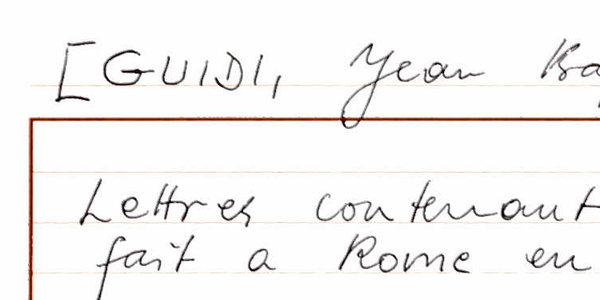 [GUIDI, Jean Ba
Lettres contenant
fait a Rome en